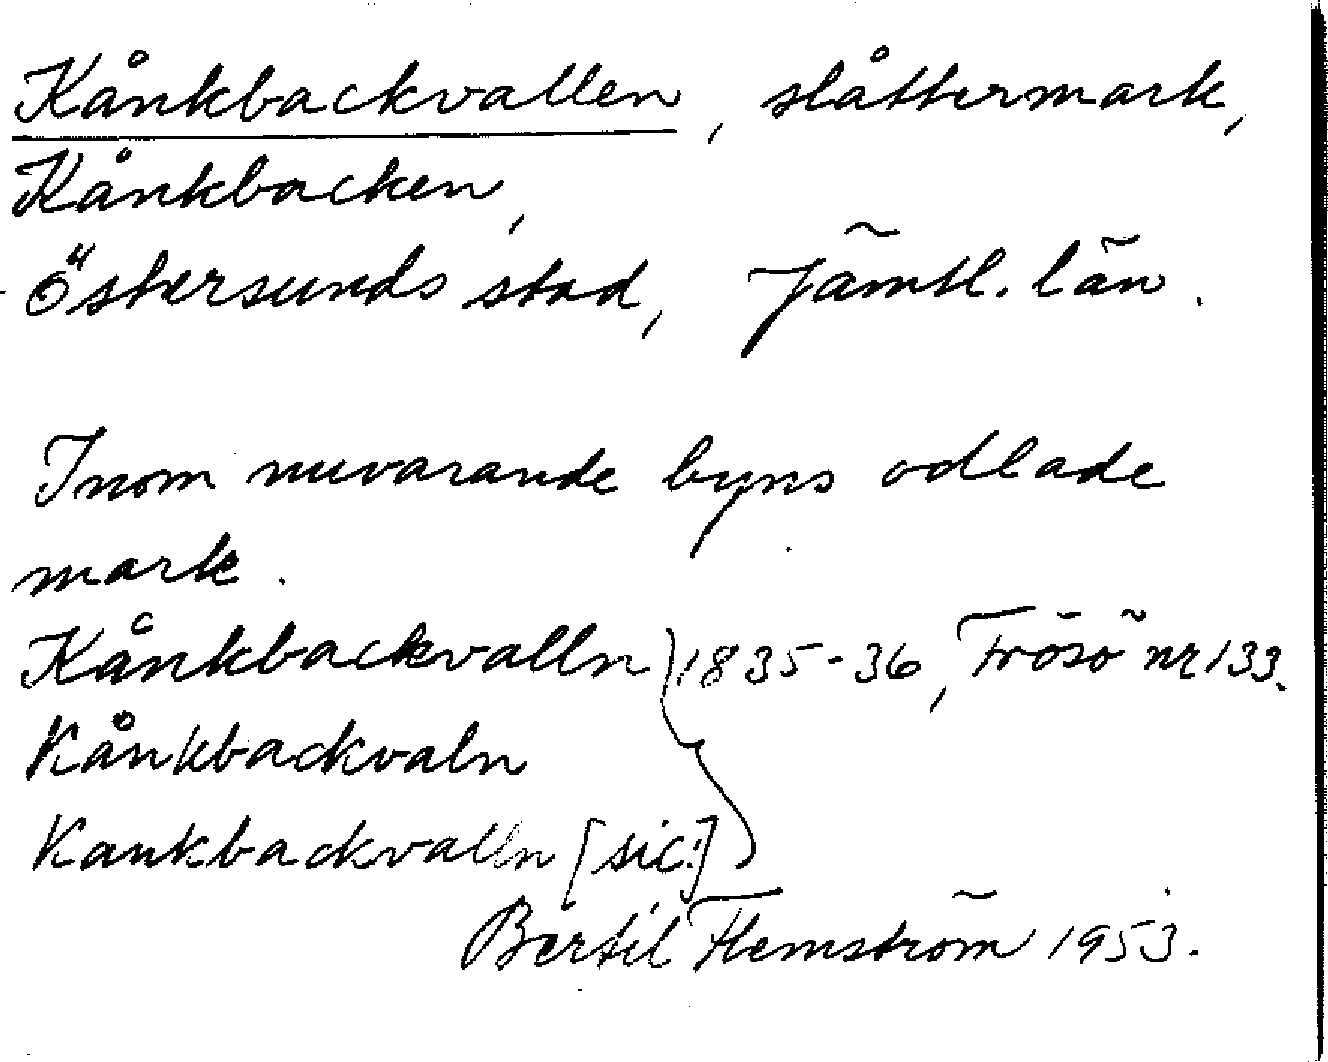 Kånkbackvallen, slåttermark,
Kånkbacken,
Östersunds stad, Jämtl. län.
Inom nuvarande byns odlade
mark.
Kånkbackvalln } 1835-36, Frösö nr 133.
Kånkbackvaln
Kankbackvalln [sic!]
Bertil Flemström 1953.